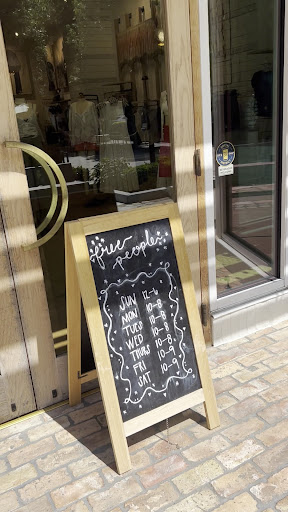 free
people
SUN 12-6
MON 10-8
TUES 10-8
WED 10-8
THURS 10-8
FRI 10-9
SAT 10-9